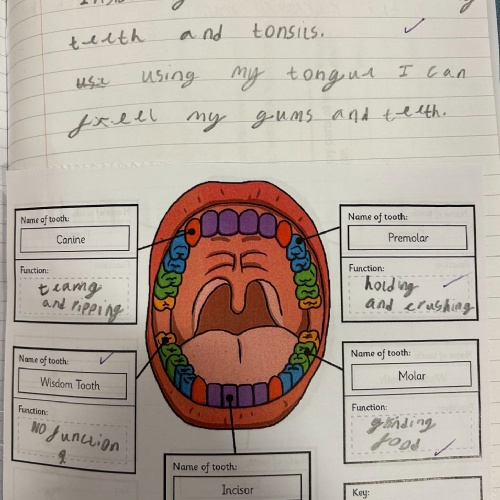 teeth and tonsils.
using my tongue I can
feell my gums and teeth.
Name of tooth:
Canine
Function:
tearing
and ripping
Name of tooth:
Premolar
Function:
holding
and crushing
Name of tooth:
Wisdom Tooth
Function:
NO function
Name of tooth:
Molar
Function:
grinding
food
Name of tooth:
Incisor
Key: